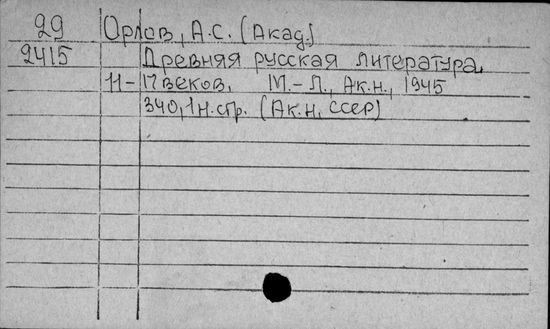 29 Орлов, А.С. (Акад.)
2415 Древняя русская литература,
11-17 веков. М.-Л., Ак.н., 1945
340, 1 н.стр. (Ак.н. СССР)